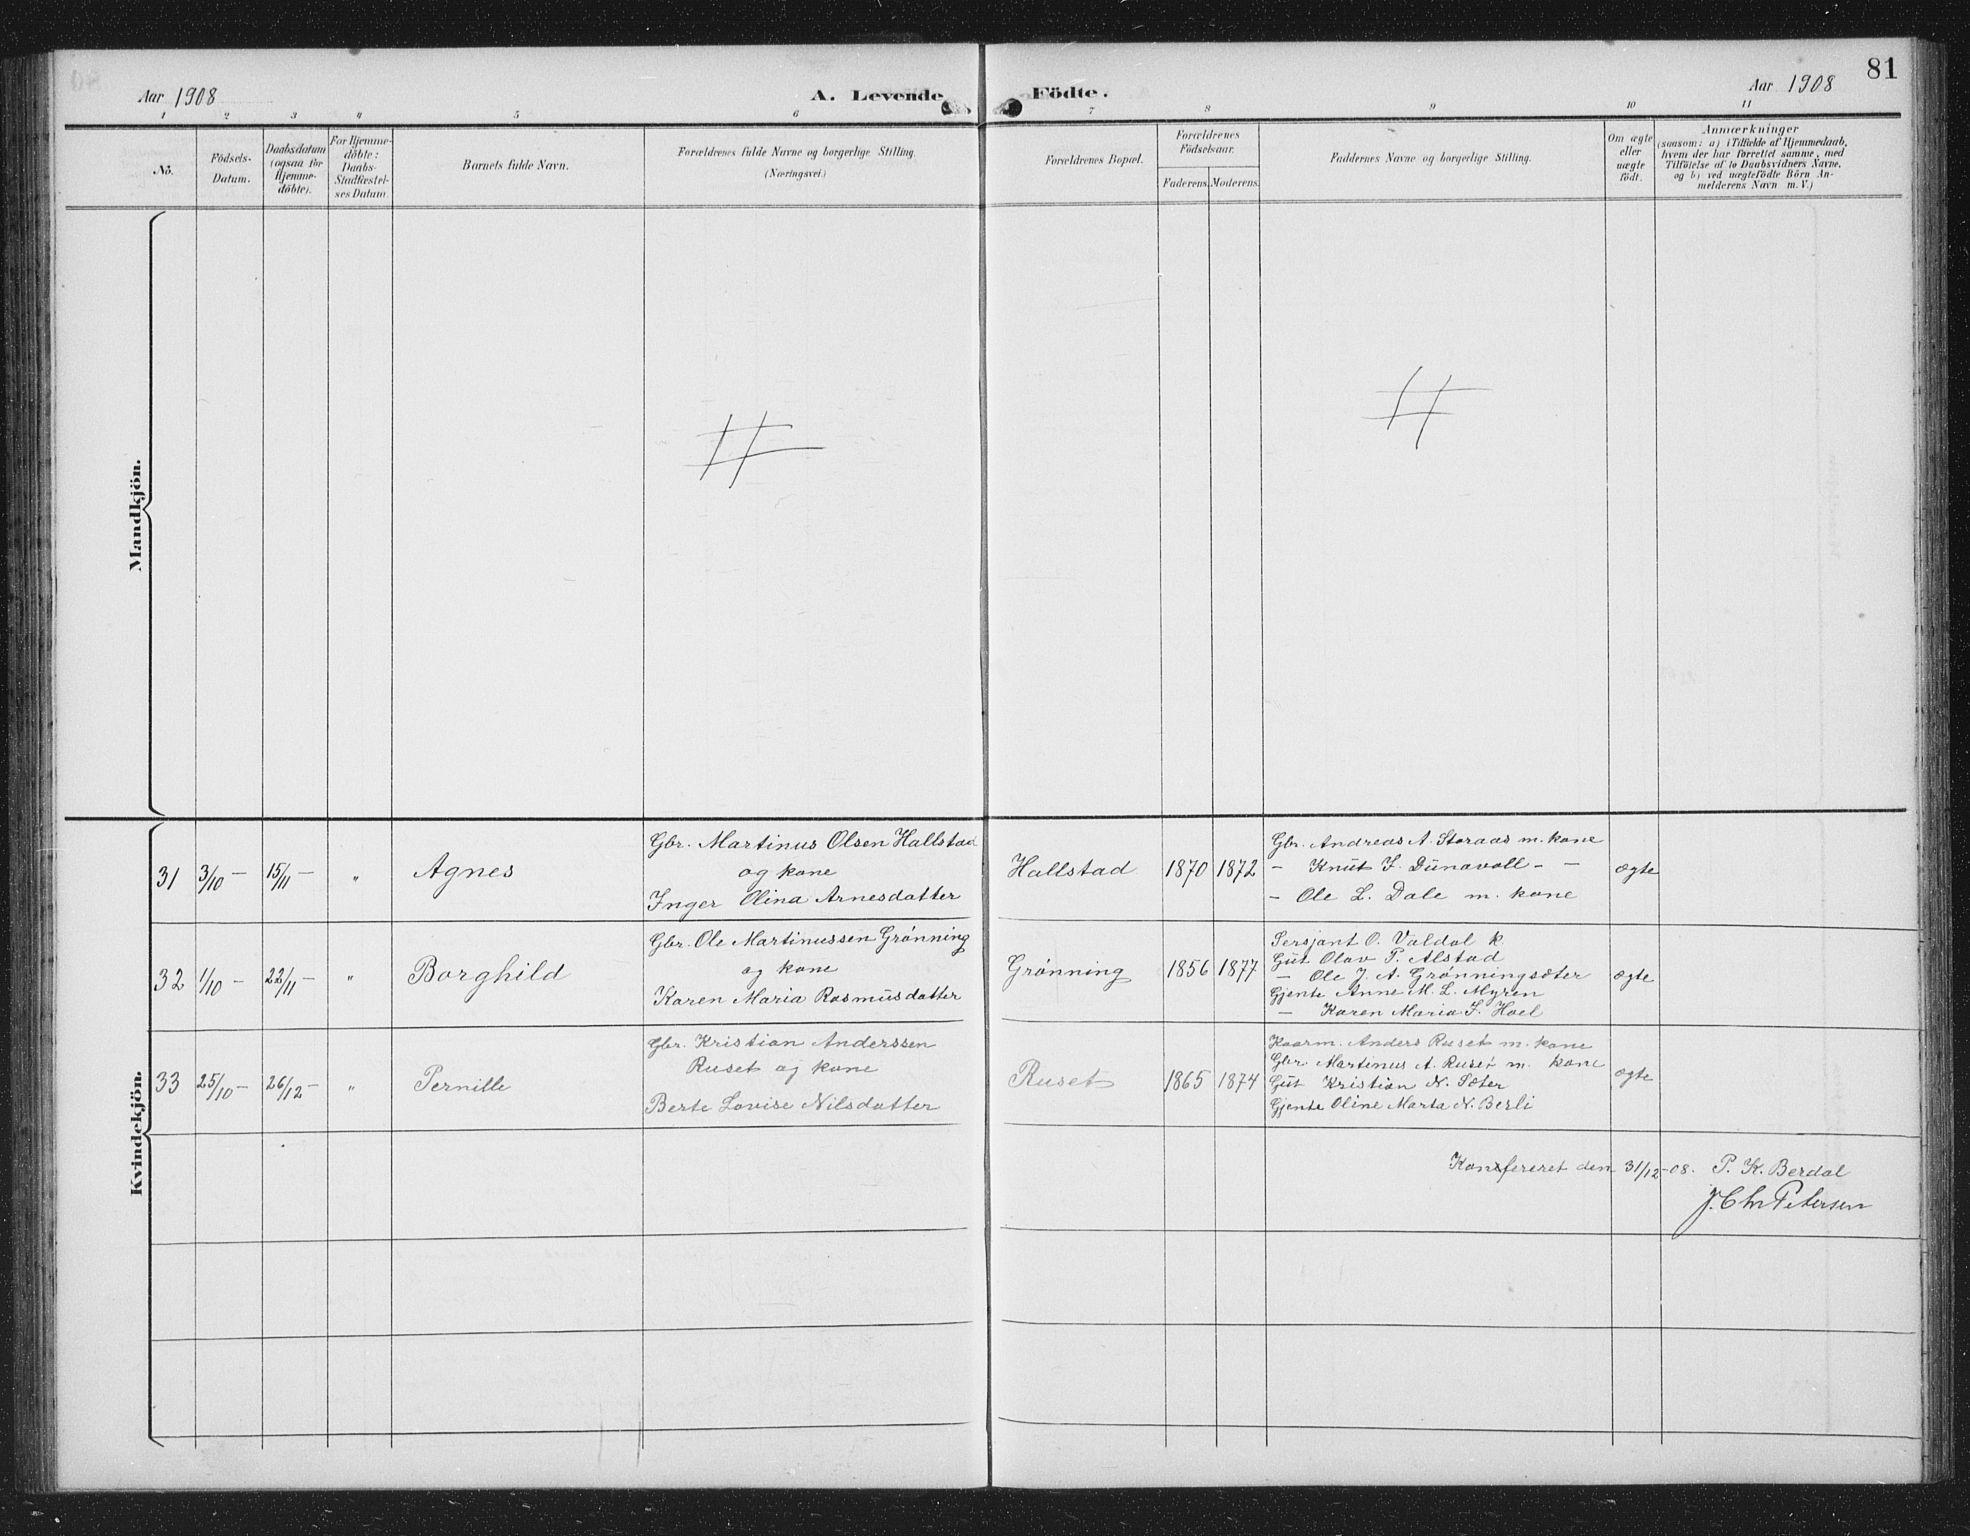 81
Aar 1908
A. Levende
Födte.
Aar 1908
1 2 3 4 5 6 7 8 9 10 11
No.
Födsels-
Datum.
Daabsdatum
(ogsaa for
Hjemme-
döbte).
For Hjemme-
döbte:
Daabs-
Stadfæstel-
ses Datum.
Barnets fulde Navn.
Forældrenes fulde Navne og borgerlige Stilling.
(Næringsvei.)
Forældrenes Bopæl.
Forældrenes
Födselsaar.
Faderens. Moderens.
Faddernes Navne og borgerlige Stilling.
Om ægte
eller
uægte
födt.
Anmærkninger
(saasom: a) i Tilfælde af Hjemmedaab,
hvem der har forrettet samme, med
Tilföielse af to Daabsvidners Navne,
og b) ved uægtefödte Börn An-
melderens Navn m. V.)
Mandkjön.
Kvindekjön.
31 3/10 – 15/11 – " Agnes
Gbr. Martinus Olsen Hallstad
og kone
Inger Olina Arnesdatter
Hallstad 1870 1872
Gbr. Andreas A. Storaas m. kone
– Knut J. Dunavoll – –
– Ole L. Dale m. kone
ægte
32 1/10 – 22/11 – " Borghild
Gbr. Ole Martinussen Grønning
og kone
Karen Maria Rasmusdatter
Grønning 1856 1877
Sersjant O. Valdal k.
Gut Olav P. Alstad
– Ole J. A. Grønningsæter
Gjente Anne M. L. Myren
– Karen Maria J. Hoel
ægte
33 25/10 – 26/12 – " Pernille
Gbr. Kristian Anderssen
Ruset og kone
Berte Lovise Nilsdatter
Ruset 1865 1874
Kaarm. Anders Ruset m. kone
Gbr. Martinus A. Ruset m. kone
Gut Kristian N. Sæter
Gjente Oline Marta N. Berli
ægte
Konfereret den 31/12 -08. P. K. Berdal
J. Chr Petersen